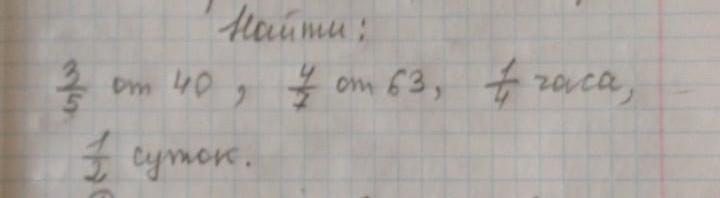 Найти:
3/5 от 40, 4/7 от 63, 1/4 часа,
1/2 суток.